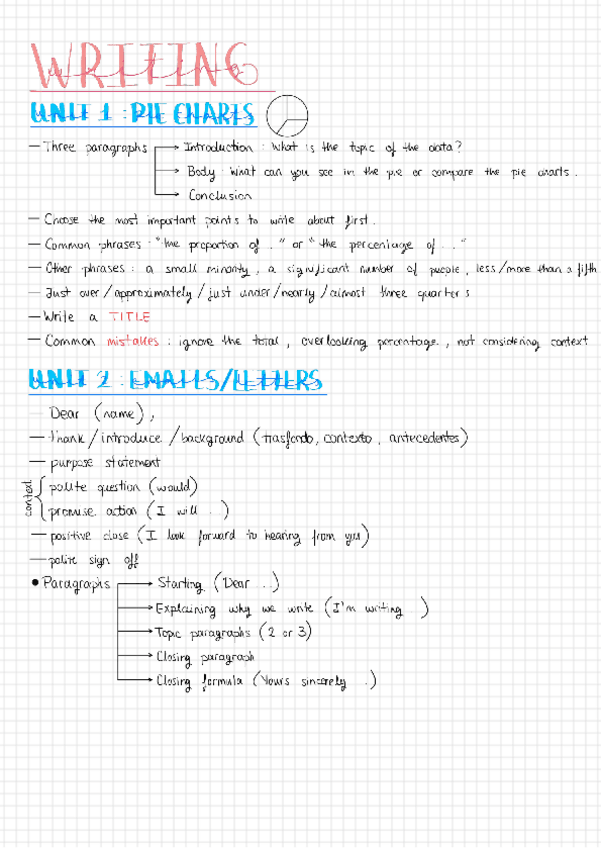 WRITING
UNIT 1 : PIE CHARTS
— Three paragraphs → Introduction : What is the topic of the data?
→ Body : What can you see in the pie or compare the pie charts.
→ Conclusion
— Choose the most important points to write about first.
— Common phrases: "the proportion of..." or "the percentage of..."
— Other phrases : a small minority, a significant number of people, less/more than a fifth
— Just over/approximately/just under/nearly/almost three quarters
— Write a TITLE
— Common mistakes : ignore the total, overlooking percentage, not considering context
UNIT 2 : EMAILS/LETTERS
— Dear (name),
— thank/introduce/background (trasfondo, contexto, antecedentes)
— purpose statement
context
polite question (would)
promise action (I will...)
— positive close (I look forward to hearing from you)
— polite sign off
• Paragraphs → Starting (Dear...)
→ Explaining why we write (I'm writing...)
→ Topic paragraphs (2 or 3)
→ Closing paragraph
→ Closing formula (Yours sincerely...)